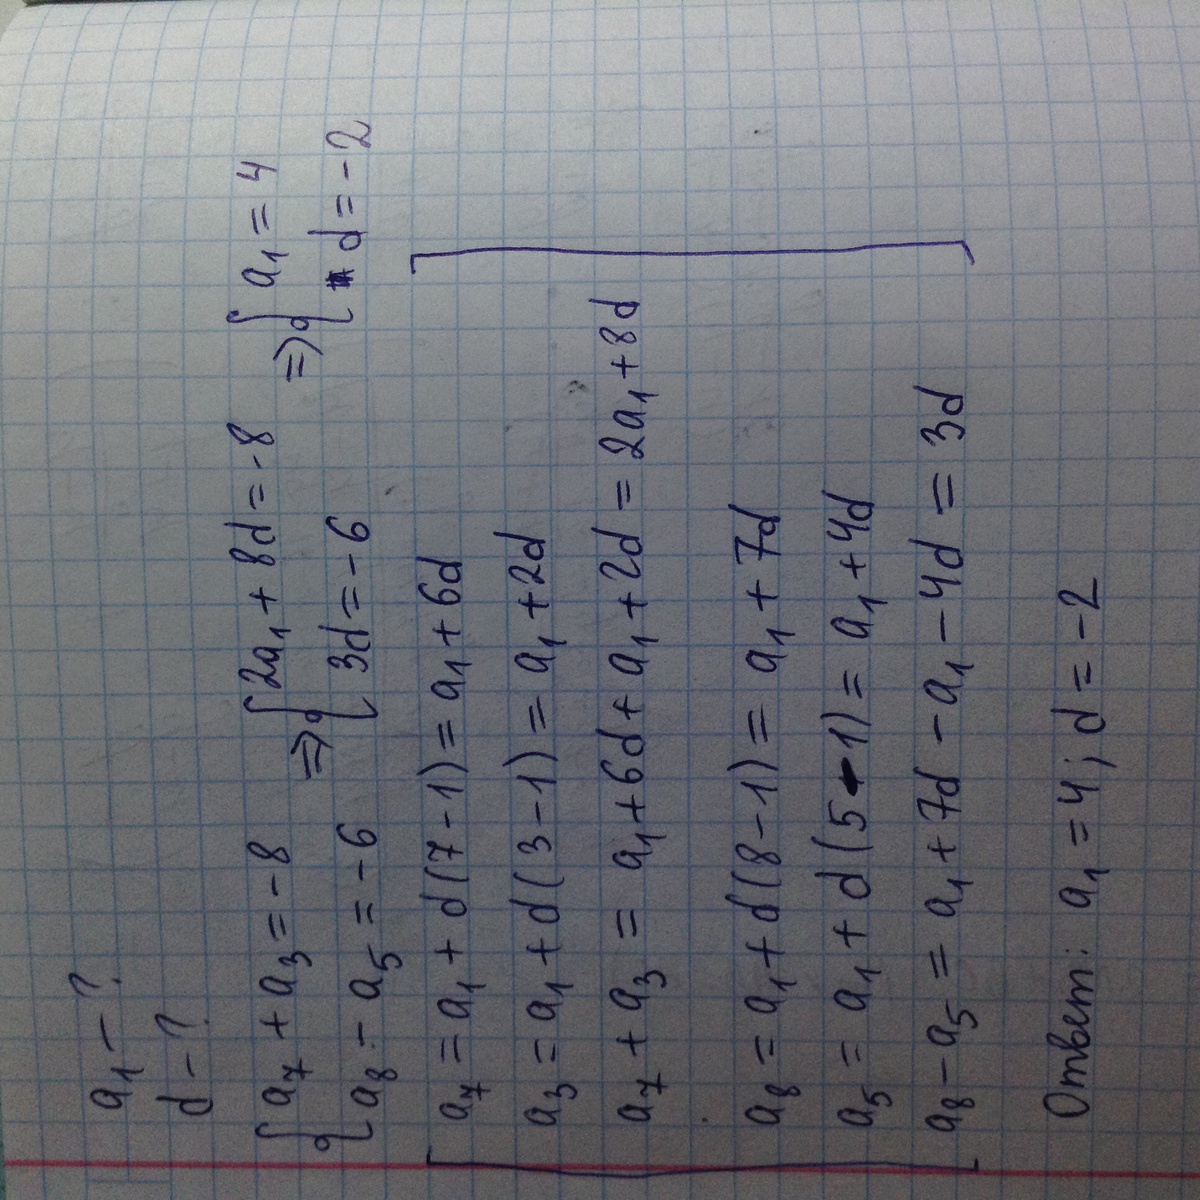 a₁ - ?
d - ?
{ a₇ + a₃ = -8 => { 2a₁ + 8d = -8 => { a₁ = 4
a₈ - a₅ = -6 3d = -6 d = -2
a₇ = a₁ + d(7-1) = a₁ + 6d
a₃ = a₁ + d(3-1) = a₁ + 2d
a₇ + a₃ = a₁ + 6d + a₁ + 2d = 2a₁ + 8d
a₈ = a₁ + d(8-1) = a₁ + 7d
a₅ = a₁ + d(5-1) = a₁ + 4d
a₈ - a₅ = a₁ + 7d - a₁ - 4d = 3d
Ответ: a₁ = 4; d = -2